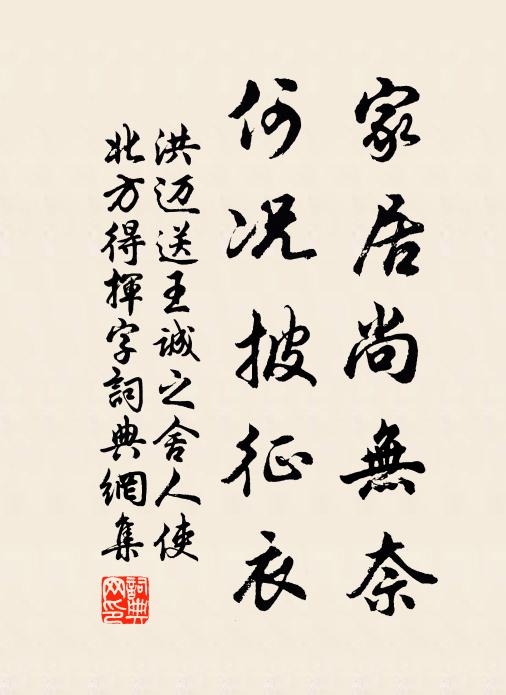 家居尚無奈
何况披征衣
洪迈送王诚之舍人使
北方得揮字詞典網集
詞典
网印